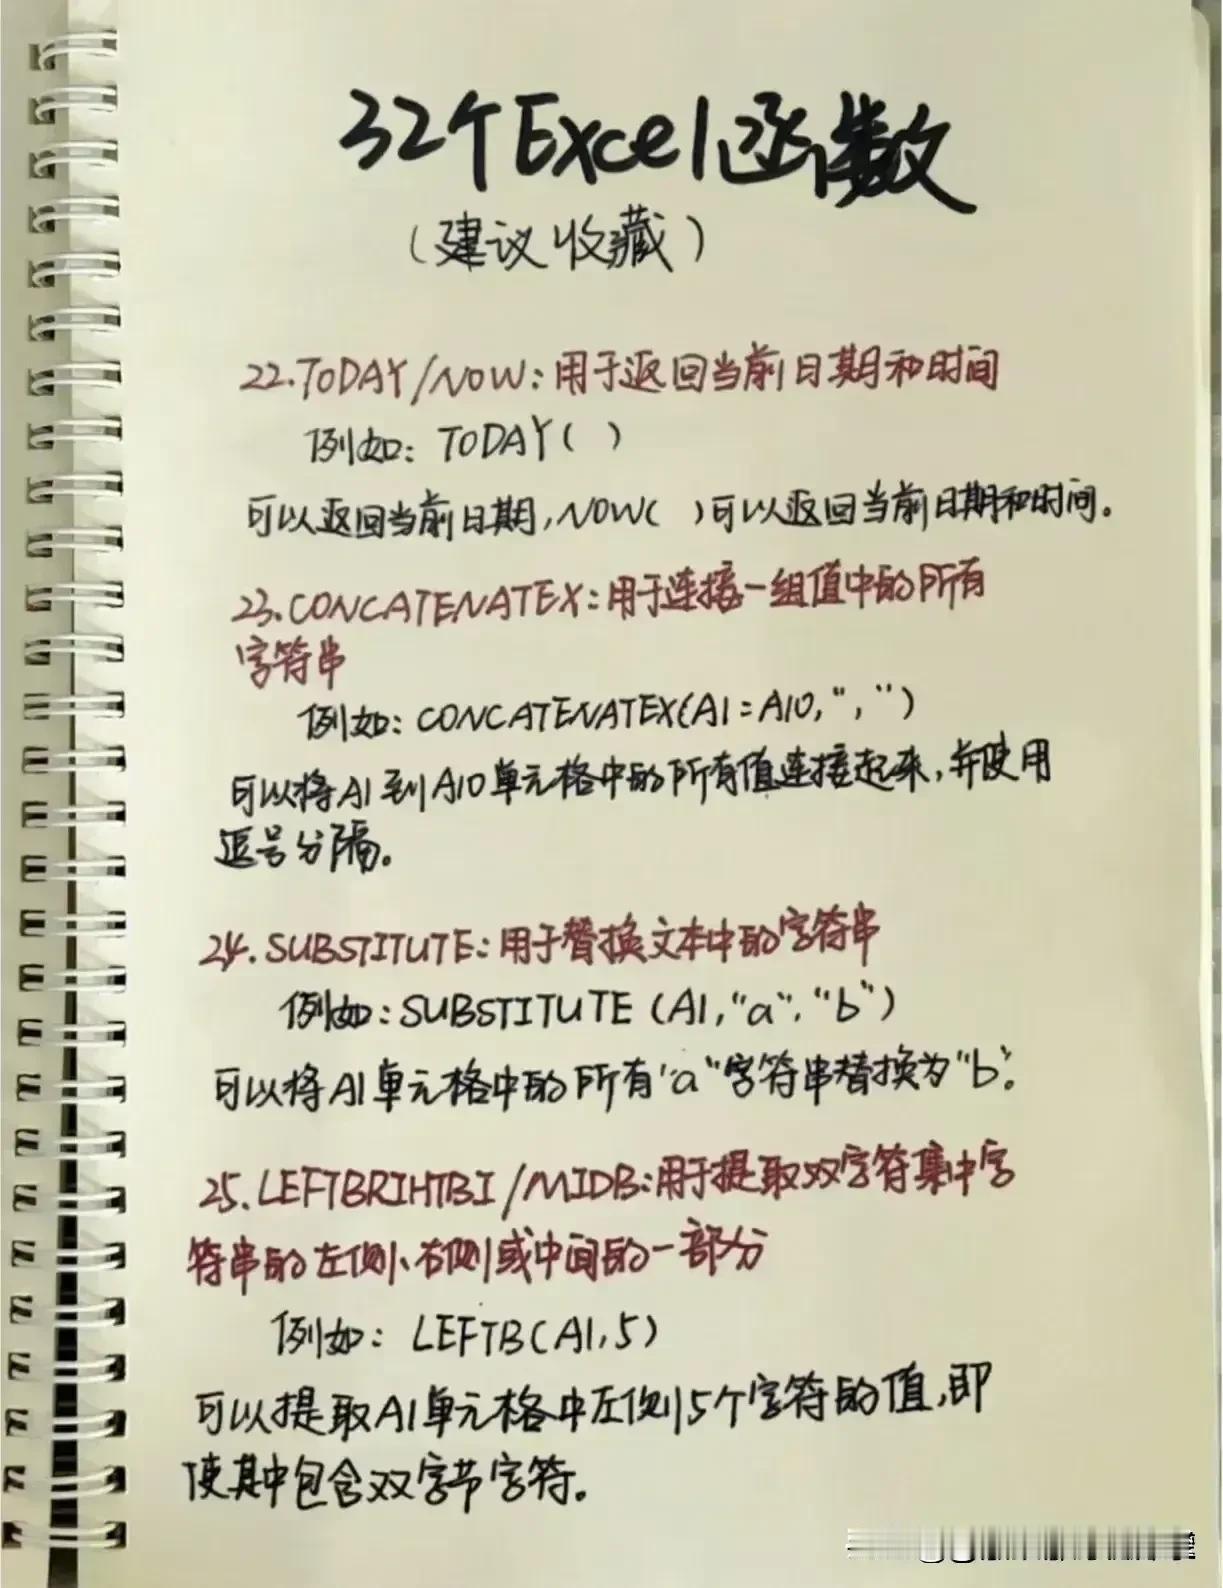 32个Excel函数
（建议收藏）
22.TODAY/NOW：用于返回当前日期和时间
例如：TODAY（ ）
可以返回当前日期，NOW（ ）可以返回当前日期和时间。
23.CONCATENATEX：用于连接一组值中的所有
字符串
例如：CONCATENATEX(A1=A10,","）
可以将A1到A10单元格中的所有值连接起来，并使用
逗号分隔。
24.SUBSTITUTE：用于替换文本中的字符串
例如：SUBSTITUTE (A1,"a","b")
可以将A1单元格中的所有"a"字符串替换为"b"。
25.LEFTBRIHTBI/MIDB：用于提取双字符集中字
符串的左侧、右侧或中间的一部分
例如：LEFTB(A1,5)
可以提取A1单元格中左侧5个字符的值，即
使其中包含双字节字符。